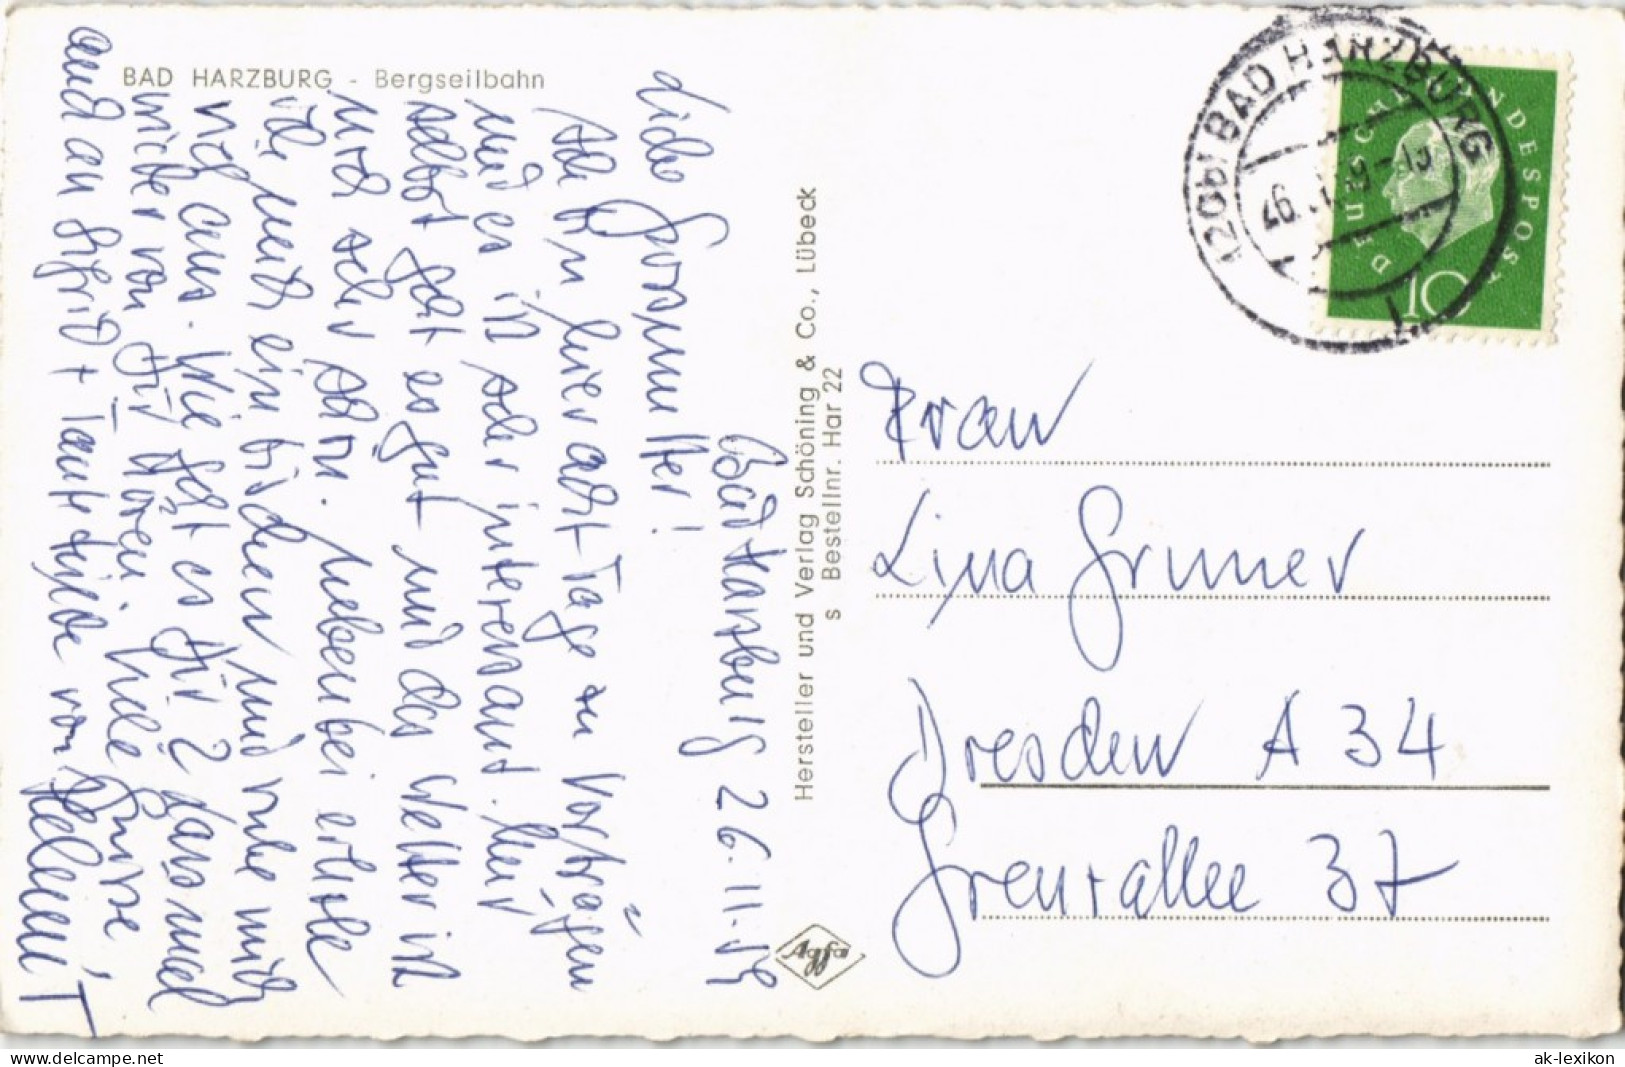 BAD HARZBURG - Bergseilbahn
Bad Harzburg 26.11.59
Liebe Grossmutter!
Ich bin hier acht Tage zu Vorträgen
und es ist sehr interessant. Mir
selbst geht es gut und das Wetter ist
auch sehr schön. Nebenbei erhole
ich mich ein bisschen und ruhe mich
aus. Wie geht es Dir? Lass mal
wieder von Dir hören. Viele Grüsse
auch an Sigrid + Tante
von Helmut
Hersteller und Verlag Schöning & Co., Lübeck
s Bestellnr. Har 22
Agfa
(20b) BAD HARZBURG
26.
1
DEUTSCHE BUNDESPOST
10
Frau
Lina Gruner
Dresden A 34
Grenzallee 37
delcampe.net
ak-lexikon